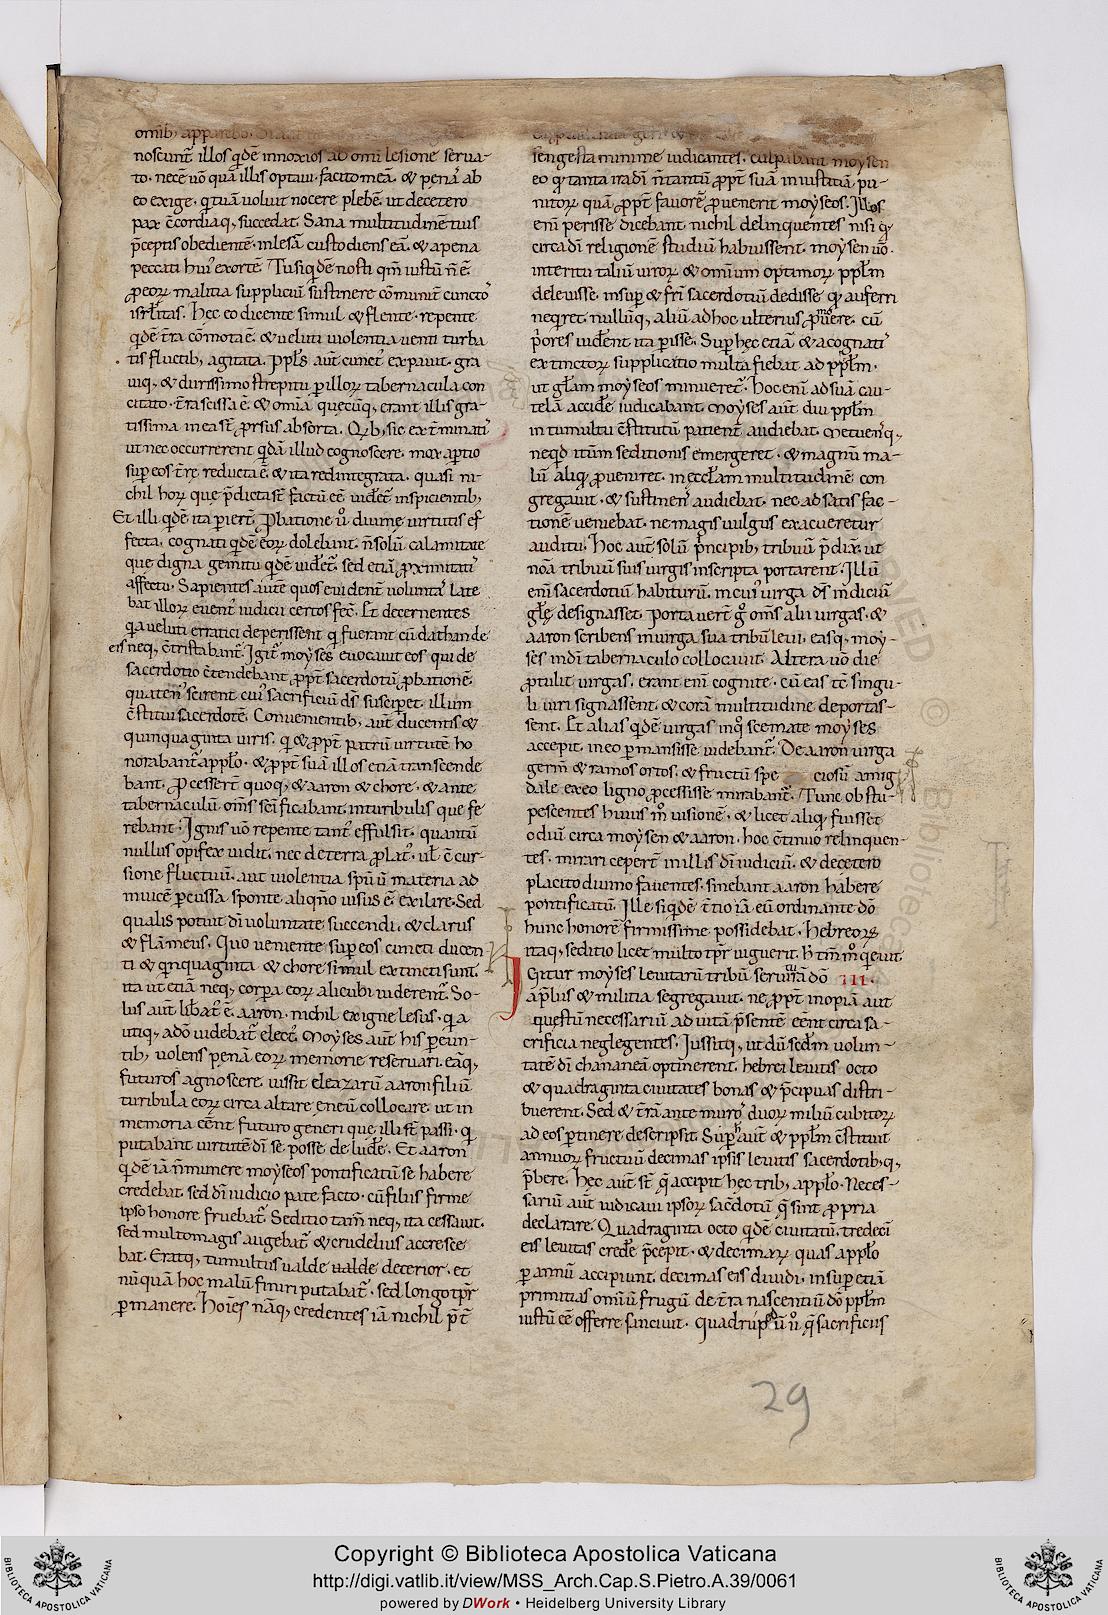 omib; apparebo.
noscunt͛ illos q̇dē innoxios ab omi lesione serua-
to. necē uō quā illis optaui. facito meā. & penā ab
eo exige. q̇ tuam uoluit nocere plebē. ut decetero
pax c̄cordiaq; succedat. Sana multitudinē tuis
p̄ceptis obedientē. inlesā custodiens eā. & apena
peccati hui᾽ exortē. Tu siq̇dē nosti qm̄ iustū n̄ ē.
p̱eoꝝ malitia suppliciū sustinere cōmunit͛ cuncto᾽
isrl̄itas. Hęc eo dicente simul & flente. repente
q̇dē t̄ra cōmota ē. & ueluti uiolentia uenti turba
tis fluctib; agitata. ppl̄s aut̄ cunct᾽ expauit. gra
uiq; & durissimo strepitu p̱ illoꝝ tabernacula con
citato. t̄ra scissa ē. & omīa quęcūq; erant illis gra-
tissima in ea st̄ p̱rsus absorta. Qꝫb; sic ext̄minati᾽
ut nec occurrerent q̇dā illud cognoscere. mox ap̱tio
sup̱ eos t̄rę reducta ē. & ita redintegrata. quasi ni-
chil hoꝝ que p̄dicta st̄ factū eē uidet͛ inspicientib;
Et illi q̇dē ita p̱iert̄. p̱batione u᾽ diuinę uirtutis ef
fecta. cognati q̇dē eoꝝ dolebant. n̄ solū calamitate
que digna gemitu q̇dē uidet͛. sed etiā p̱ximitati᾽
affectu. Sapientes autē quos euident᾽ uoluntā late
bat illoꝝ euent᾽ iudicii certos fec̄. Et decernentes
qa ueluti erratici deperissent q̇ fuerant cū dathan de
eis neq; c̄tristabant͛. Igit͛ moyses euocauit eos qui de
sacerdotio c̄tendebant p̱pt̄ sacerdotū p̱bationē.
quaten᾽ scirent cui᾽ sacrificiū dū suscip̱et. illum
c̄stitui sacerdotē. Conuenientib; aut̄ ducentis &
quinquaginta uiris. q̇ & p̱pt̄ patrū uirtutē ho
norabant͛ applo. & p̱pt̄ suā illos etiā transcende
bant. P̱cessert̄ quoq; & aaron & chore. & ante
tabernaculū. oms̄ sc̄ificabant. inturibulis que fe
rebant. Ignis uō repente tant᾽ effulsit. quantū
nullus opifex uidit. nec de terra p̱lat᾽. ul̄ ē cur-
sione fluctuū. aut uiolentia sp̄uū materia ad
inuicē p̱cussa. sponte aliqn̄o uisus ē exilire. Sed
qualis potuit dī uoluntate succendi. & clarus
& flāmeus. Quo ueniente sup̱ eos cuncti ducen-
ti & q̇nquaginta & chore simul extincti sunt.
ita ut etiā neq; corp̱a eoꝝ alicubi uiderent͛. So-
lus aut̄ lib̄at᾽ ē. aaron. nichil ex igne lesus. q̇ a
utiq; adō uidebat͛ elect᾽. Moyses aut̄ his p̱eun-
tib; uolens penā eoꝝ memorie reseruari. eāq;
futuros agnoscere. iussit eleazarū aaron filiū
turibula eoꝝ circa altare ęneū collocare. ut in
memoria eēnt futuro generi que illi st̄ passi. q̇
putabant uirtutē dī se posse deludere. Et aaron
q̇dē iā n̄ munere moyseos pontificatū se habere
credebat. sed dī iudicio pate facto. cū filiis firme
ipso honore fruebat͛. Seditio tam̄ neq; ita cessauit.
sed multo magis augebat͛. & crudelius accresce
bat. Eratq; tumultus ualde ualde deterior. et
nūquā hoc malū finiri putabat͛. sed longo tp̄r
p̱manere. Hoīes nāq; credentes iā nichil p̄t᾽
sengesta minime iudicantes. culpabant moysen
eo q̇ tanta ira dī n̄ tantū p̱pt̄ suā iniustitiā pu-
nitoꝝ quā p̱pt̄ fauorē p̱uenerit moyseos. Illos
enī perisse dicebant nichil delinquentes nisi q̇
circa dī religionē studiū habuissent. moysen uō.
interitu taliū uiroꝝ & omīum optimoꝝ ppl̄m
deleuisse. insup̱ & fr̄i sacerdotiū dedisse q̇ auferri
neq̇ret. nullūq; aliū ad hoc ulterius p̱mouere. cū
p̄ores uiderent ita p̱isse. Sup̱ hęc etiā & a cognati᾽
extinctoꝝ supplicatio multa fiebat ad ppl̄m.
ut gl̄am moyseos minueret͛. Hoc enī ad suā cau-
telā accide iudicabant. Moyses aut̄ diu ppl̄m
in tumultu c̄stitutū patient᾽ audiebat. Metuen᾽q;
neq̇d itūm seditionis emergeret. & magnū ma-
lū aliq̇ p̱ueniret. in ęccl̄am multitudinē con
gregauit. & sustinent᾽ audiebat. nec ad satis fac-
tionē ueniebat. ne magis uulgus exacueretur
auditu. Hoc aut̄ solū p̄ncipib; tribuū p̄dix̄. ut
noā tribuū suis uirgis inscripta portarent. Illū
enī sacerdotiū habiturū. in cui᾽ uirga dū indiciū
gl̄ę designasset. Portauert̄ g᾽ oms̄ alii uirgas. &
aaron scribens in uirga sua tribū leui. easq; moy-
ses in dī tabernaculo collocauit. Altera uō die
p̱tulit uirgas. erant enī cognite. cū eas tē singu-
li uiri signassent. & corā multitudine deportas-
sent. Et alias q̇dē uirgas inq̇ scemate moyses
accepit. in eo p̱mansisse uidebant͛. De aaron uirga
germ̄ & ramos ortos. & fructū spe ciosū amig
dale ex eo ligno p̱cessisse mirabant͛. Tunc obstu-
pescentes huius m᾽ uisionē. & licet aliq̇ fuisset
odiū circa moysen & aaron. hoc c̄tinuo relinquen-
tes. mirari cepert̄ in illis dī iudiciū. & decetero
placito diuino fauentes. sinebant aaron habere
pontificatū. Ille siq̇dē t̄tio iā eū ordinante dō
hunc honorē firmissime possidebat. Hebreoꝝ
itaq; seditio licet multo tp̄r uiguerit. h̄ tm̄ m᾽ q̇euit.
Igitur moyses leuitarū tribū seruiturā dō III.
a p̄lbus & militia segregauit. ne p̱pt̄ inopiā aut
questū necessariū ad uitā p̄sentē eēnt circa sa-
crificia neglegentes. Iussitq; ut dū sedm̄ uolun-
tatē dī chananeā optinerent. hebrei leuitis octo
& quadraginta ciuitates bonas & p̄cipuas distri-
buerent. Sed & t̄rā ante muro᾽ duoꝝ miliū cubitoꝝ
ad eos p̱tinere descripsit. Sup̱ h̄ aut̄ & ppl̄m c̄stituit
annuoꝝ fructuū decimas ipsis leuitis sacerdotib; q;
p̄bere. Hęc aut̄ st̄ q̄ accipit hęc trib; applo. Neces-
sariū aut̄ iudicaui ipsoꝝ sac̄dotū q̄ sint p̱pria
declarare. Quadraginta octo q̇dē ciuitatū. tredeci
eis leuitas credere p̄cepit. & decimaꝝ quas applo
p̱ annū accipiunt. decimas eis diuidi. insup̱ etiā
primitias omīū frugū de t̄ra nascentiū dō ppl̄m
iustū eē offerre sanciuit. Quadrupedū u᾽ q̄ sacrificiis
29
Copyright © Biblioteca Apostolica Vaticana
http://digi.vatlib.it/view/MSS_Arch.Cap.S.Pietro.A.39/0061
powered by DWork • Heidelberg University Library